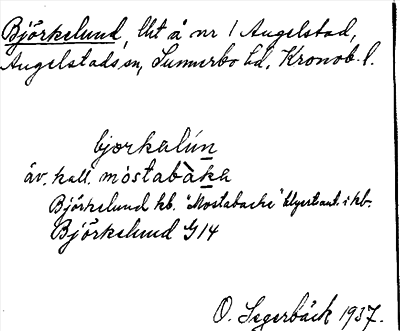 Björkelund, lht å nr 1 Augelstad,
Augelstads sn, Sunnerbo hd, Kronob. l.
bjorkalún
äv. kall. móstabàka
Björkelund kb. "Mostabacke" i kb.
Björkelund G14
O. Segerbäck 1937.